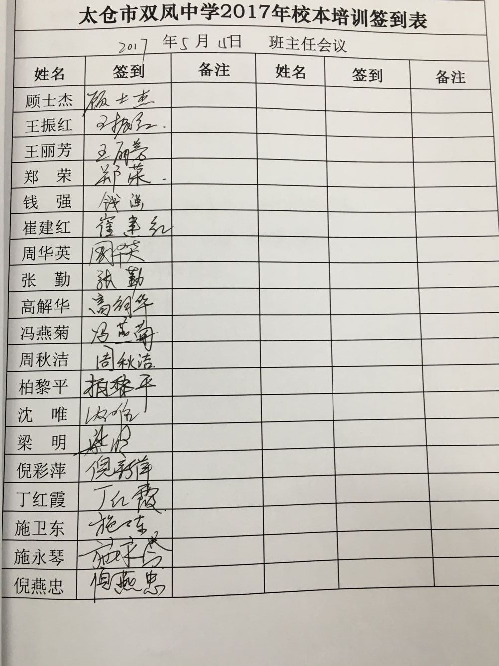 太仓市双凤中学2017年校本培训签到表
2017 年 5 月 日 班主任会议
姓名 签到 备注 姓名 签到 备注
顾士杰 顾士杰
王振红 王振红
王丽芳 王丽芳
郑 荣 郑荣
钱 强 钱强
崔建红 崔建红
周华英 周华英
张 勤 张勤
高解华 高解华
冯燕菊 冯燕菊
周秋洁 周秋洁
柏黎平 柏黎平
沈 唯 沈唯
梁 明 梁明
倪彩萍 倪彩萍
丁红霞 丁红霞
施卫东 施卫东
施永琴 施永琴
倪燕忠 倪燕忠